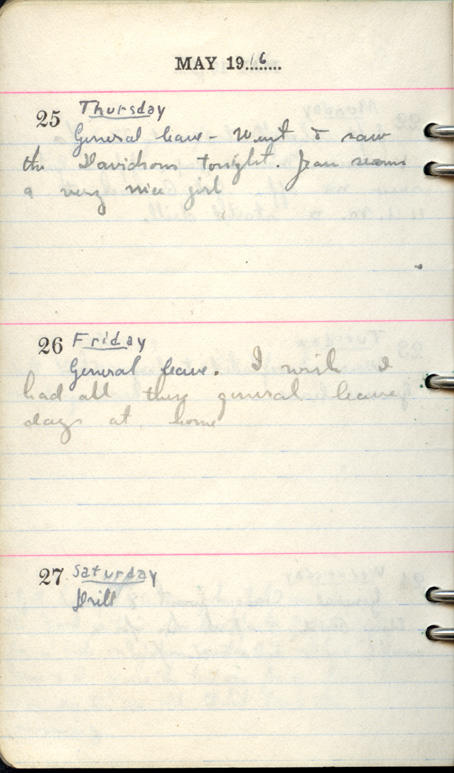 MAY 1916
25 Thursday
General leave - Went & saw
the Davidsons tonight. Jean seems
a very nice girl
26 Friday
General leave. I wish I
had all these general leave
days at home
27 Saturday
Drill